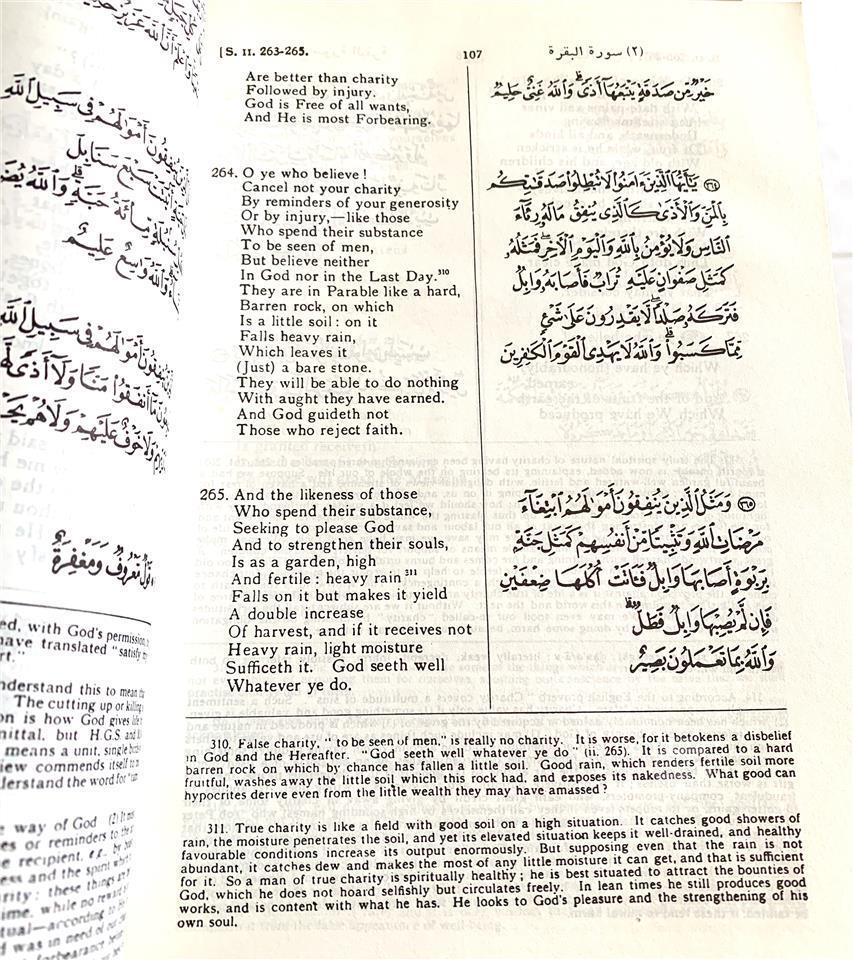 [S. II. 263-265.
107
(٢) سورة البقرة
Are better than charity
Followed by injury.
God is Free of all wants,
And He is most Forbearing.
264. O ye who believe !
Cancel not your charity
By reminders of your generosity
Or by injury,—like those
Who spend their substance
To be seen of men,
But believe neither
In God nor in the Last Day.³¹⁰
They are in Parable like a hard,
Barren rock, on which
Is a little soil : on it
Falls heavy rain,
Which leaves it
(Just) a bare stone.
They will be able to do nothing
With aught they have earned.
And God guideth not
Those who reject faith.
265. And the likeness of those
Who spend their substance,
Seeking to please God
And to strengthen their souls,
Is as a garden, high
And fertile : heavy rain³¹¹
Falls on it but makes it yield
A double increase
Of harvest, and if it receives not
Heavy rain, light moisture
Sufficeth it. God seeth well
Whatever ye do.
خَيْرٌ مِّن صَدَقَةٍ يَتْبَعُهَا أَذًى ۗ وَاللَّهُ غَنِيٌّ حَلِيمٌ
٢٦٤ يَا أَيُّهَا الَّذِينَ ءَامَنُوا لَا تُبْطِلُوا صَدَقَاتِكُم
بِالْمَنِّ وَالْأَذَىٰ كَالَّذِي يُنفِقُ مَالَهُ رِئَاءَ
النَّاسِ وَلَا يُؤْمِنُ بِاللَّهِ وَالْيَوْمِ الْآخِرِ ۖ فَمَثَلُهُ
كَمَثَلِ صَفْوَانٍ عَلَيْهِ تُرَابٌ فَأَصَابَهُ وَابِلٌ
فَتَرَكَهُ صَلْدًا ۖ لَّا يَقْدِرُونَ عَلَىٰ شَيْءٍ
مِّمَّا كَسَبُوا ۗ وَاللَّهُ لَا يَهْدِي الْقَوْمَ الْكَافِرِينَ
٢٦٥ وَمَثَلُ الَّذِينَ يُنفِقُونَ أَمْوَالَهُمُ ابْتِغَاءَ
مَرْضَاتِ اللَّهِ وَتَثْبِيتًا مِّنْ أَنفُسِهِمْ كَمَثَلِ جَنَّةٍ
بِرَبْوَةٍ أَصَابَهَا وَابِلٌ فَآتَتْ أُكُلَهَا ضِعْفَيْنِ
فَإِن لَّمْ يُصِبْهَا وَابِلٌ فَطَلٌّ ۗ
وَاللَّهُ بِمَا تَعْمَلُونَ بَصِيرٌ
310. False charity, "to be seen of men," is really no charity. It is worse, for it betokens a disbelief
in God and the Hereafter. "God seeth well whatever ye do" (ii. 265). It is compared to a hard
barren rock on which by chance has fallen a little soil. Good rain, which renders fertile soil more
fruitful, washes away the little soil which this rock had, and exposes its nakedness. What good can
hypocrites derive even from the little wealth they may have amassed ?
311. True charity is like a field with good soil on a high situation. It catches good showers of
rain, the moisture penetrates the soil, and yet its elevated situation keeps it well-drained, and healthy
favourable conditions increase its output enormously. But supposing even that the rain is not
abundant, it catches dew and makes the most of any little moisture it can get, and that is sufficient
for it. So a man of true charity is spiritually healthy ; he is best situated to attract the bounties of
God, which he does not hoard selfishly but circulates freely. In lean times he still produces good
works, and is content with what he has. He looks to God's pleasure and the strengthening of his
own soul.